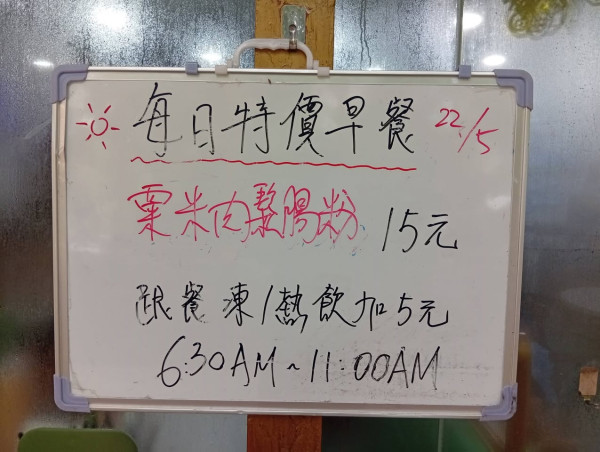 每日特價早餐 22/5
粟米肉鬆腸粉 15元
跟餐凍/熱飲加5元
6:30AM~11:00AM